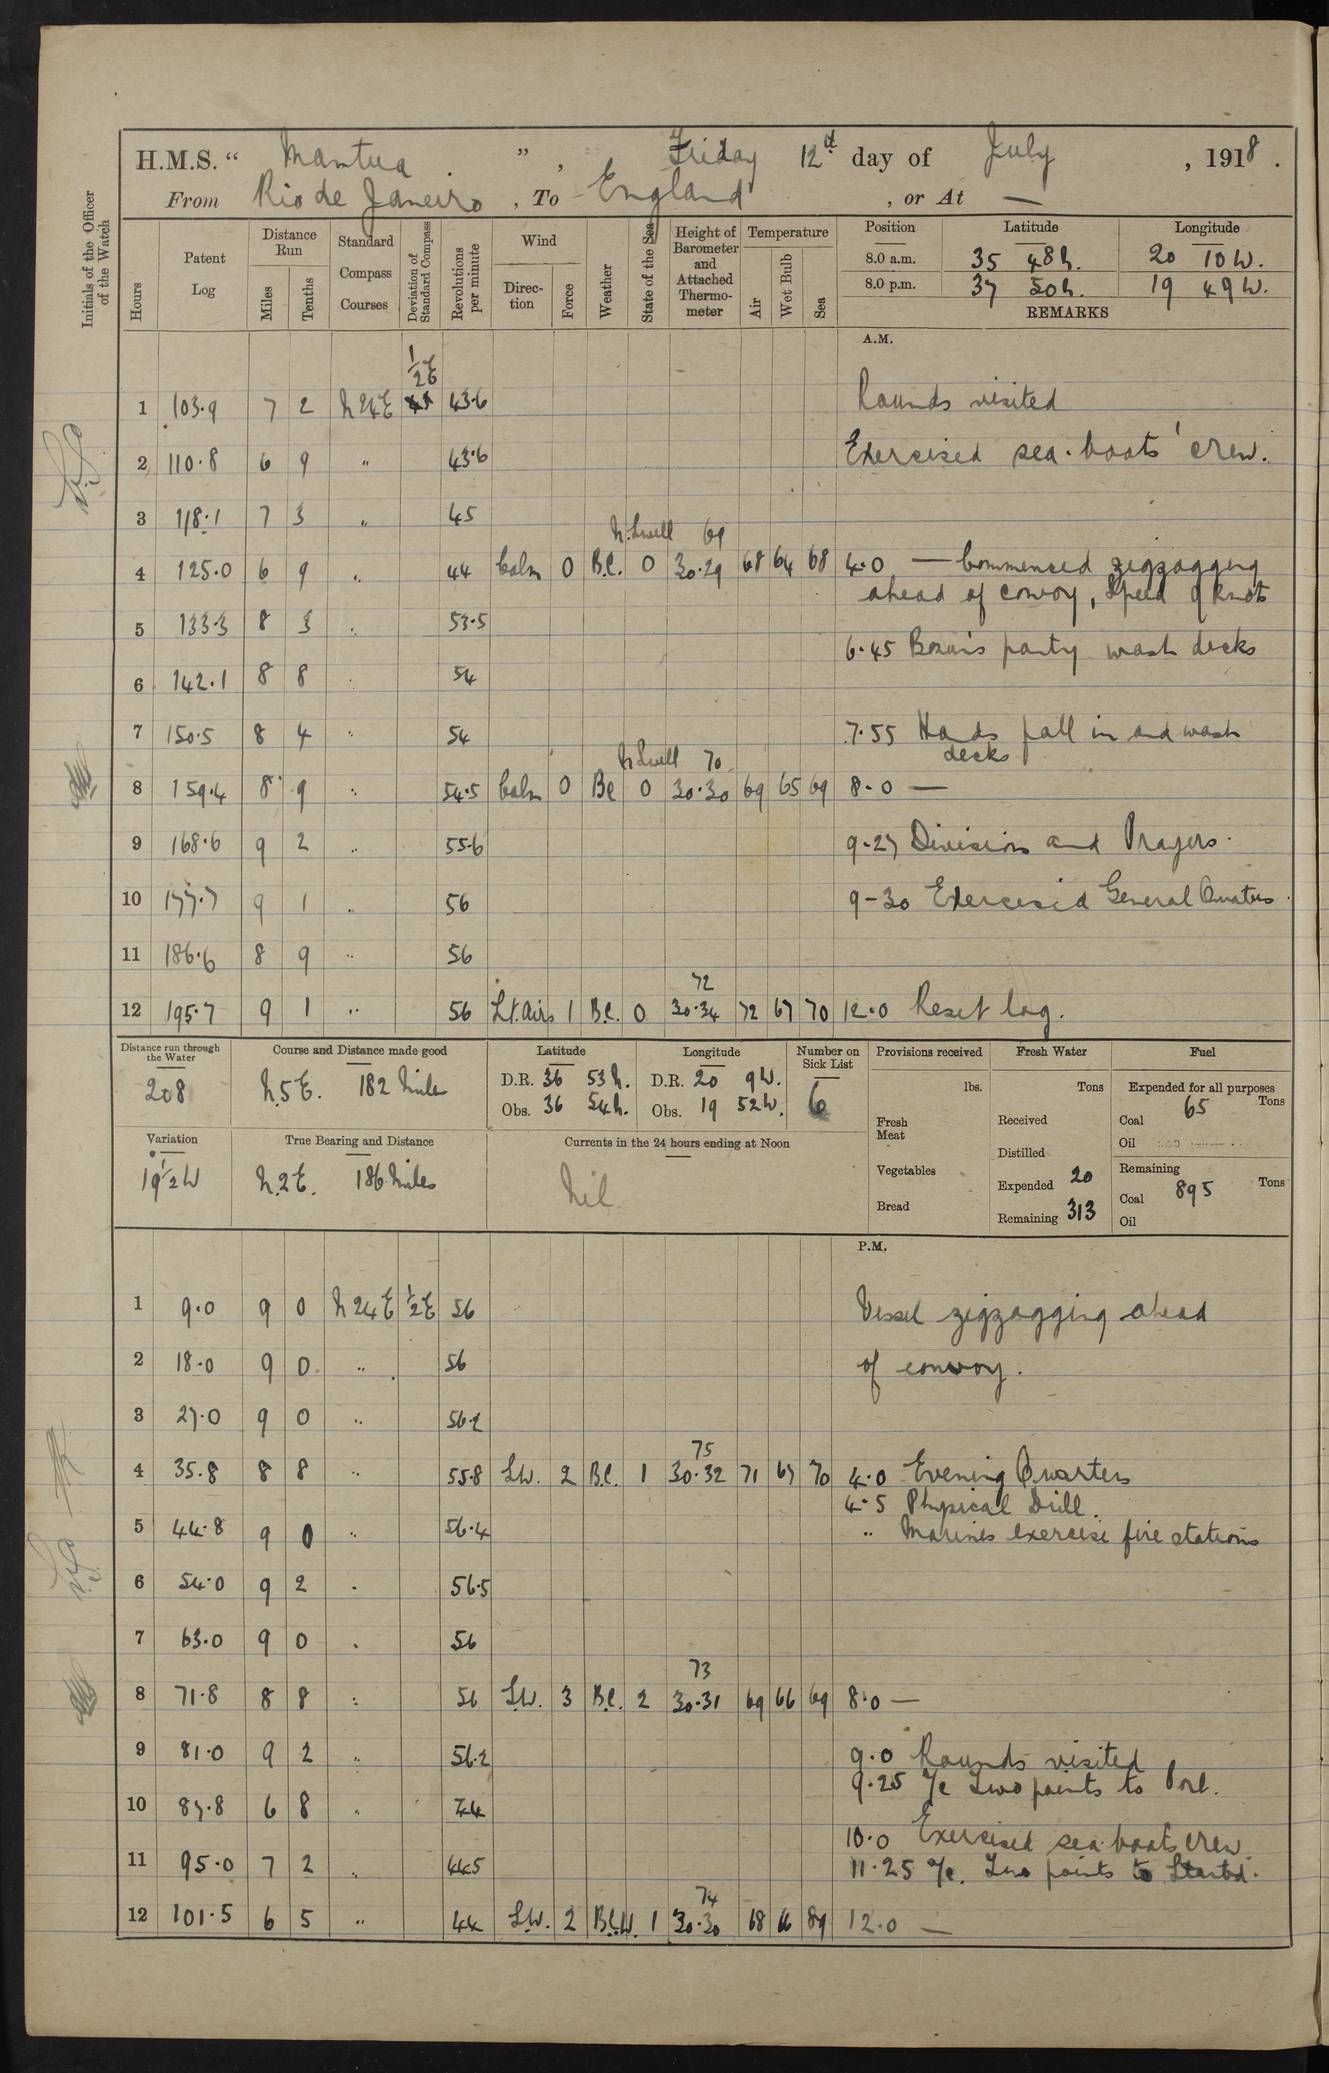 H.M.S. “ Mantua ” , Friday 12th day of July , 1918 .
From Rio de Janeiro , To England , or At —
Initials of the Officer of the Watch
Hours
Patent Log
Distance Run
Miles
Tenths
Standard Compass Courses
Deviation of Standard Compass
Revolutions per minute
Wind
Direction
Force
Weather
State of the Sea
Height of Barometer and Attached Thermometer
Temperature
Air
Wet Bulb
Sea
Position Latitude Longitude
8.0 a.m. 35 48 N. 20 10 W.
8.0 p.m. 37 50 N. 19 49 W.
REMARKS
A.M.
1/2 E
1 103.9 7 2 N 24 E 43.6 Rounds visited
2 110.8 6 9 " 43.6 Exercised sea-boats' crew.
3 118.1 7 3 " 45
N. Swell 69
4 125.0 6 9 " 44 Calm 0 B.C. 0 30.29 68 64 68 4.0 — Commenced zigzagging
ahead of convoy, Speed 9 knots
5 133.3 8 3 " 53.5
6.45 Bosun's party wash decks
6 142.1 8 8 " 54
7 150.5 8 4 " 54 7.55 Hands fall in and wash
decks
N Swell 70
8 159.4 8 9 " 54.5 Calm 0 BC 0 30.30 69 65 69 8.0 —
9 168.6 9 2 " 55.6 9.27 Divisions and Prayers.
10 177.7 9 1 " 56 9-30 Exercised General Quaters.
11 186.6 8 9 " 56
72
12 195.7 9 1 " 56 Lt. Airs 1 B.C. 0 30.34 72 67 70 12.0 Reset log.
Distance run through the Water
208
Course and Distance made good
N. 5 E. 182 Miles
Latitude
D.R. 36 53 N.
Obs. 36 54 N.
Longitude
D.R. 20 9 W.
Obs. 19 52 W.
Number on Sick List
6
Variation
19 1/2 W
True Bearing and Distance
N. 2 E. 186 Miles
Currents in the 24 hours ending at Noon
Nil
Provisions received
lbs.
Fresh Meat
Vegetables
Bread
Fresh Water
Tons
Received
Distilled
Expended 20
Remaining 313
Fuel
Expended for all purposes
Tons
Coal 65
Oil
Remaining
Tons
Coal 895
Oil
P.M.
1 9.0 9 0 N 24 E 1/2 E 56 Vessel zigzagging ahead
2 18.0 9 0 " 56 of convoy.
3 27.0 9 0 " 56.2
75
4 35.8 8 8 " 55.8 S.W. 2 B.C. 1 30.32 71 67 70 4.0 Evening Quarters
4.5 Physical Drill.
5 44.8 9 0 " 56.4 " Marines exercise fire stations
6 54.0 9 2 " 56.5
7 63.0 9 0 " 56
73
8 71.8 8 8 " 56 S.W. 3 B.C. 2 30.31 69 66 69 8.0 —
9 81.0 9 2 " 56.2 9.0 Rounds visited
9.25 A/c Two points to Port.
10 87.8 6 8 " 44
10.0 Exercised sea-boats crew.
11 95.0 7 2 " 44.5 11.25 A/c. Two points to Starbd.
74
12 101.5 6 5 " 44 S.W. 2 B.C.W. 1 30.30 68 66 69 12.0 —